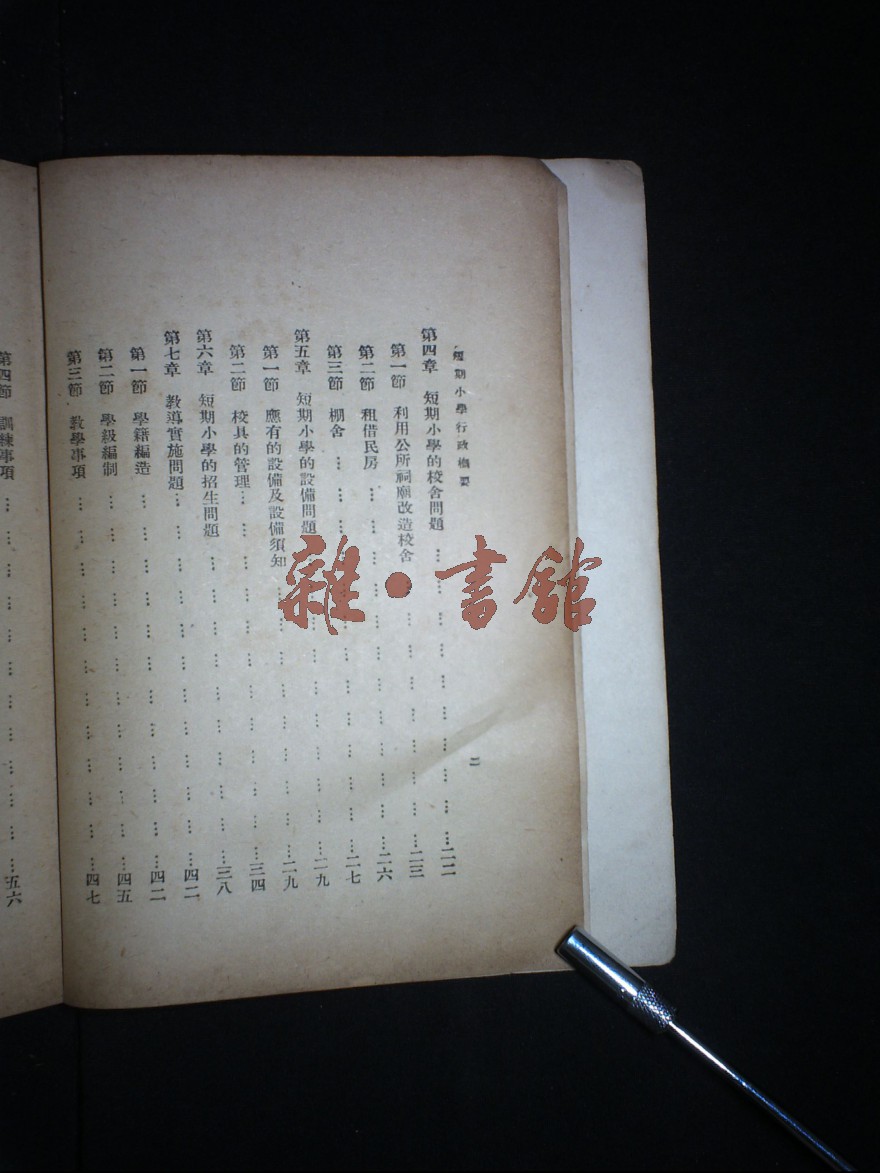 短期小學行政概要
二
第四章 短期小學的校舍問題 … … … … … … … … … …二二
第一節 利用公所祠廟改造校舍 … … … … … … … … …二三
第二節 租借民房 … … … … … … … … … … … …二六
第三節 棚舍 … … … … … … … … … … … … …二七
第五章 短期小學的設備問題 … … … … … … … … … …二九
第一節 應有的設備及設備須知 … … … … … … … … …二九
第二節 校具的管理… … … … … … … … … … … …三四
第六章 短期小學的招生問題 … … … … … … … … …三八
第七章 教導實施問題… … … … … … … … … … … …四二
第一節 學籍編造 … … … … … … … … … … … …四二
第二節 學級編制 … … … … … … … … … … … …四五
第三節 教學事項 … … … … … … … … … … … …四七
第四節 訓練事項 … … … … … … … … … … … …五六
雜·書館